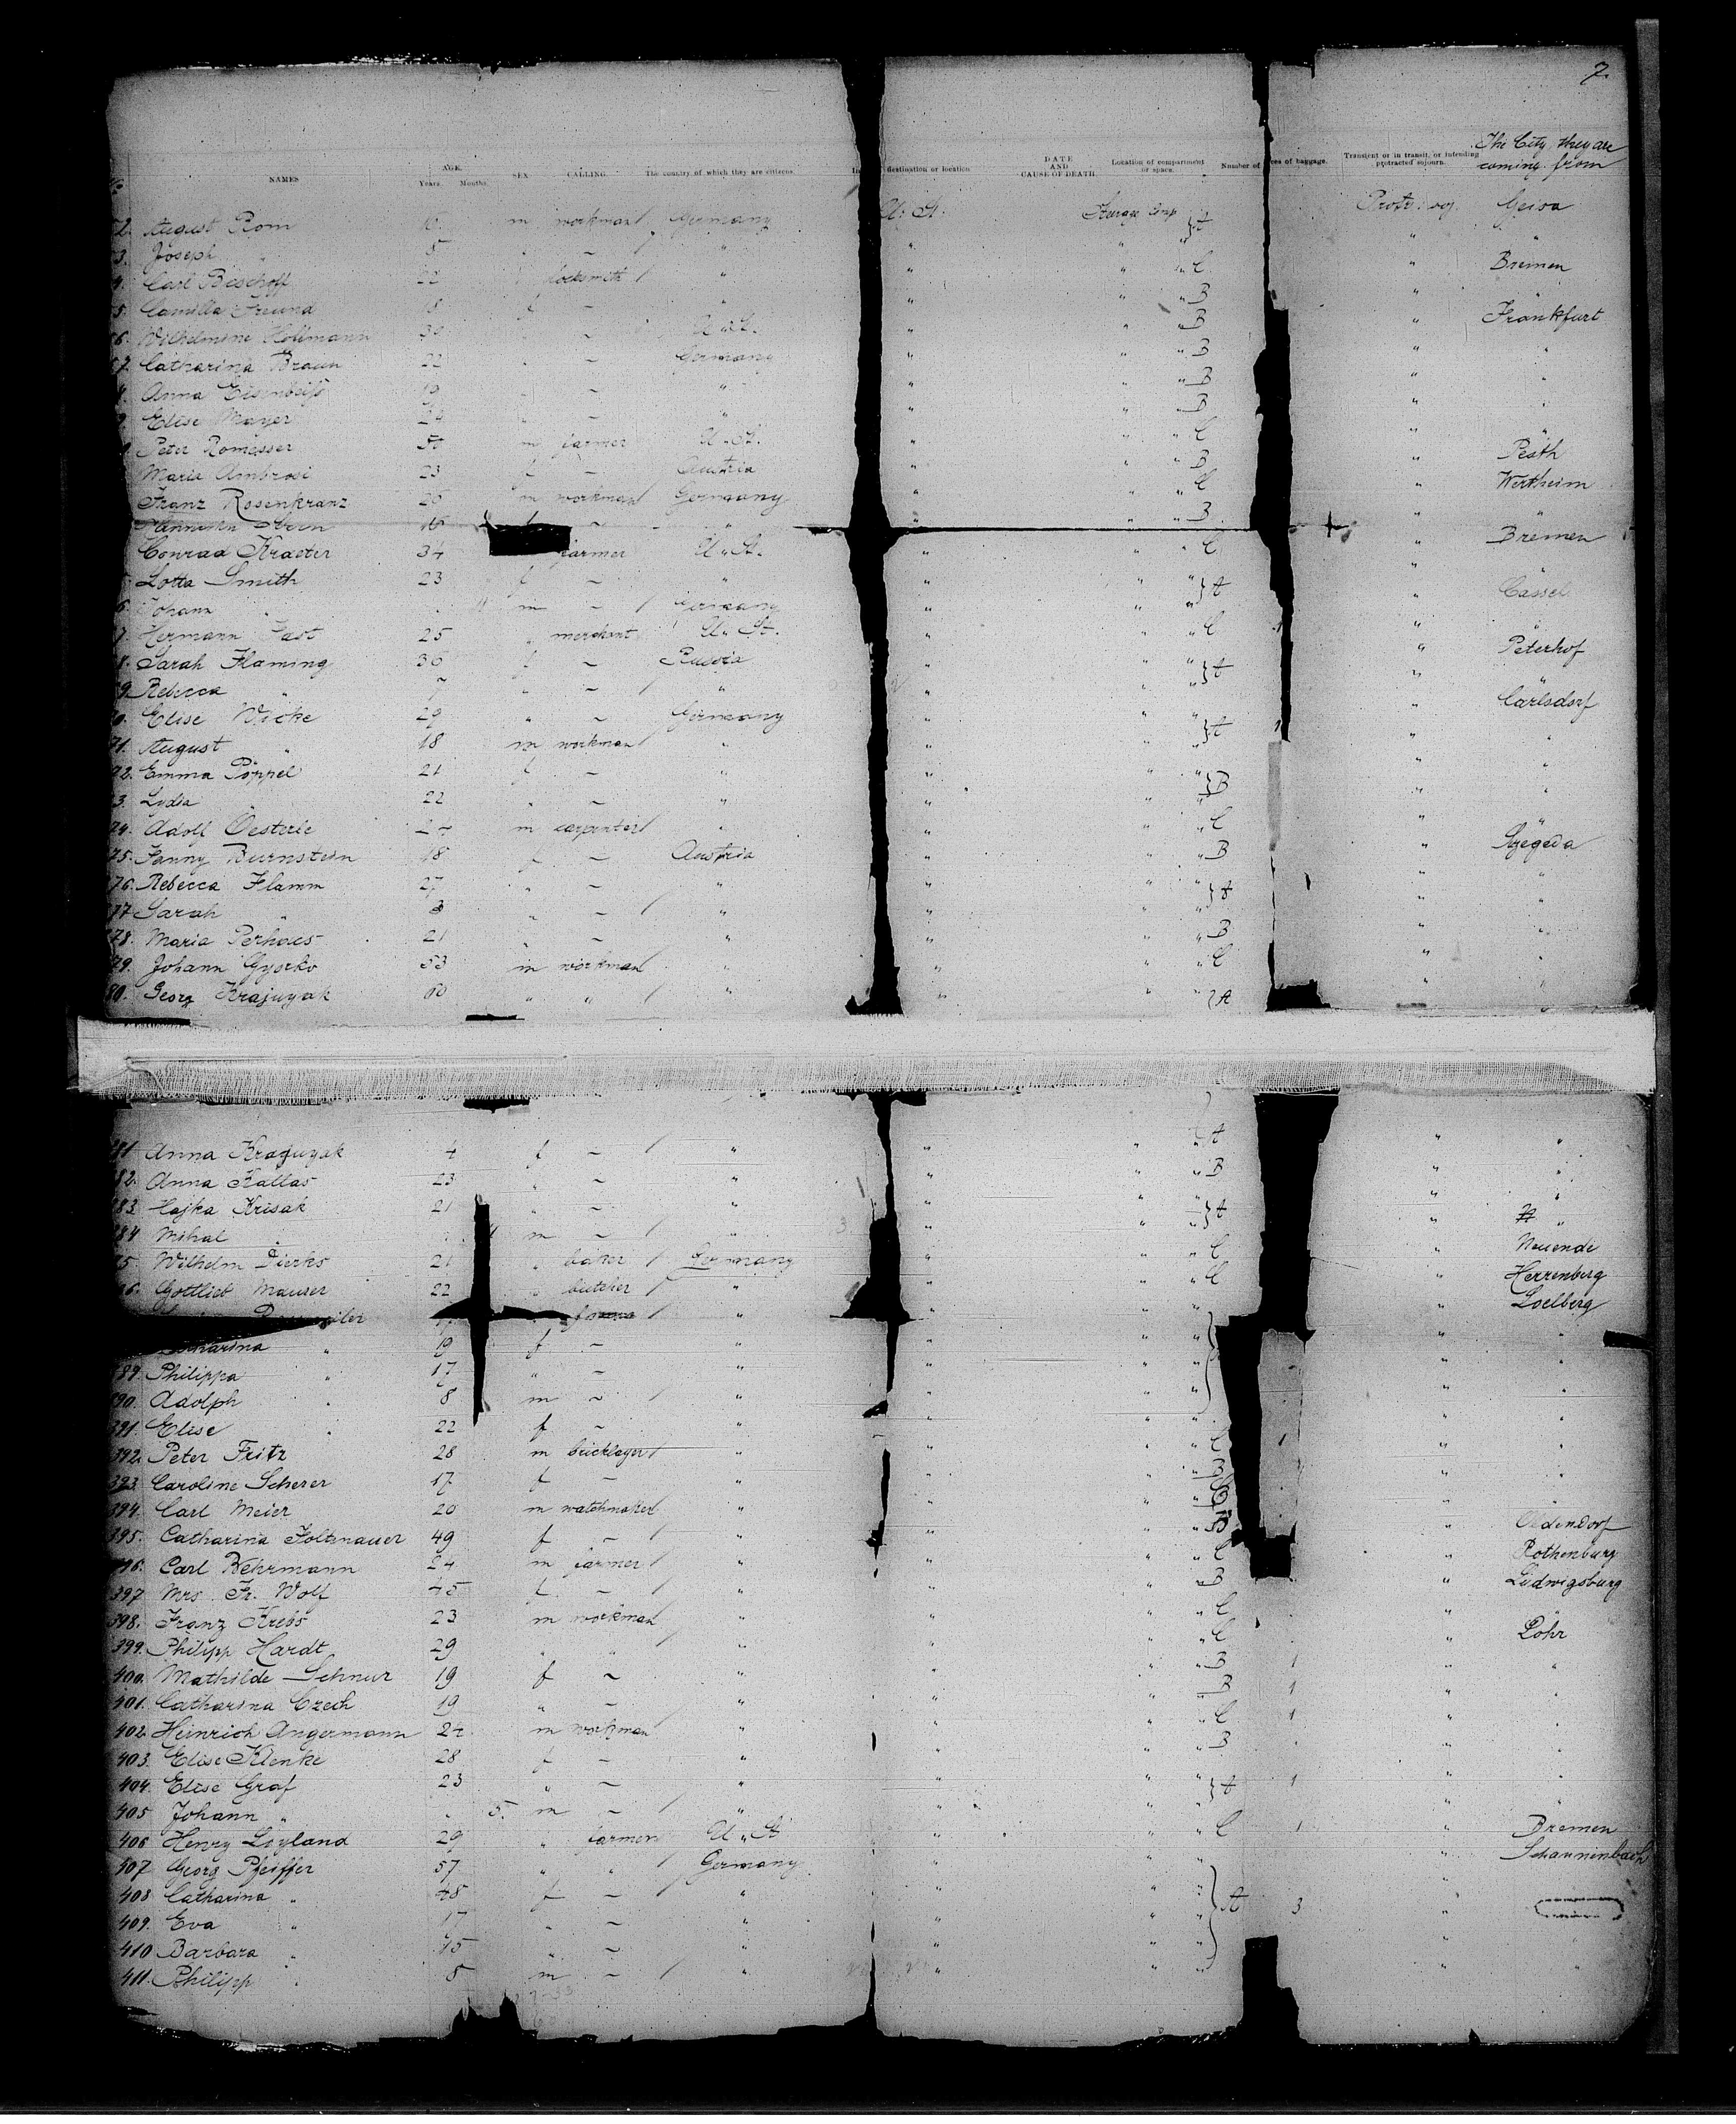 7.
The City they are
coming from
NAMES AGE. Years. Months. SEX CALLING. The country of which they are citizens. destination or location DATE AND CAUSE OF DEATH. Location of compartment or space. Number of of baggage. Transient or in transit, or intending protracted sojourn.
2. August Rom m workman Germany U. St. Steerage Comp A Geisa
3. Joseph " 5 - " " " " " "
4. Carl Bischoff 22 locksmith " " " " C " Bremen
5. Camilla Freund 18 f - " " " " B "
6. Wilhelmine Holtmann 30 - U. St. " " " B " Frankfurt
7. Catharina Braun 22 - Germany " " " B " "
Anna Eisenbeiss 19 - " " " " B " "
9. Elise Mayer 24 - " " " " B " "
Peter Romesser m farmer U. St. " " " C " "
Maria Ambrosi 23 f - Austria " " " B " Pesth
Franz Rosenkranz 26 m workman Germany " " " C " Wertheim
f - " " " " B " "
Conrad Kraeter 34 farmer U. St. " " " C " Bremen
5. Lotta Smith 23 f - " " " " A " "
6. Johann " 11 m - Germany " " " " Cassel
7. Hermann Gast 25 " merchant U. St. " " " C 1 " "
8. Sarah Flaming 36 f - Russia " " " A " Peterhof
9. Rebecca " 7 " - " " " " " "
Elise Wicke 29 " - Germany " " " A 1 " Carlsdorf
71. August " 18 m workman " " " " " "
72. Emma Pöppel 21 f - " " " " B " "
3. Lydia " 22 " - " " " " " "
74. Adolf Oesterle 24 m carpenter " " " " C " "
75. Fanny Burnstein 18 f - Austria " " " B " Szegeda
76. Rebecca Flamm 27 " - " " " " A " "
77. Sarah " 3 " - " " " " " "
78. Maria Perhacs 21 " - " " " " B " "
79. Johann Gyorko 53 m workman " " " " C " "
80. Georg Krajuyak 60 " " " " " " A " "
381 Anna Krajuyak 4 f - " " " " A " "
382. Anna Kallas 23 " - " " " " B " "
383. Hajka Krisak 21 " - " " " " A " "
384 Mihal " m - " " " " " "
385. Wilhelm Dierks 21 " baker Germany " " " C " Neuende
386. Gottlieb Mauser 22 " butcher " " " " C " Herrenberg
" " " " " Loelberg
Catharina " 19 f - " " " " " "
389. Philippa " 17 " - " " " " " "
390. Adolph " 8 m - " " " " " "
391. Elise " 22 f - " " " " " "
392. Peter Fritz 28 m bricklayer " " " " C 1 " "
393. Caroline Scherer 17 f - " " " " B " "
394. Carl Meier 20 m watchmaker " " " " C " "
395. Catharina Foltznauer 49 f - " " " " B " Oldendorf
396. Carl Wehrmann 24 m farmer " " " " C " Rothenburg
397 Mrs. Fr. Wolf 45 f - " " " " B " Ludwigsburg
398. Franz Krebs 23 m workman " " " " C " "
399. Philipp Hardt 29 " " " " " " C " Lohr
400. Mathilde Schnur 19 f - " " " " B 1 " "
401. Catharina Czech 19 " - " " " " B 1 " "
402. Heinrich Angermann 24 m workman " " " " C 1 " "
403. Elise Klenke 28 f - " " " " B " "
404. Elise Graf 23 " - " " " " A 1 " "
405 Johann " 5. m - " " " " " "
406 Henry Loyland 29 " farmer U. St " " " C 1 " Bremen
407 Georg Pfeiffer 57 " " Germany " " " " Schannenbach
408 Catharina " 48 f - " " " " A 3 "
409. Eva " 17 " - " " " " "
410 Barbara " 15 " - " " " " " "
411. Philipp " 8 m - " " " " " "